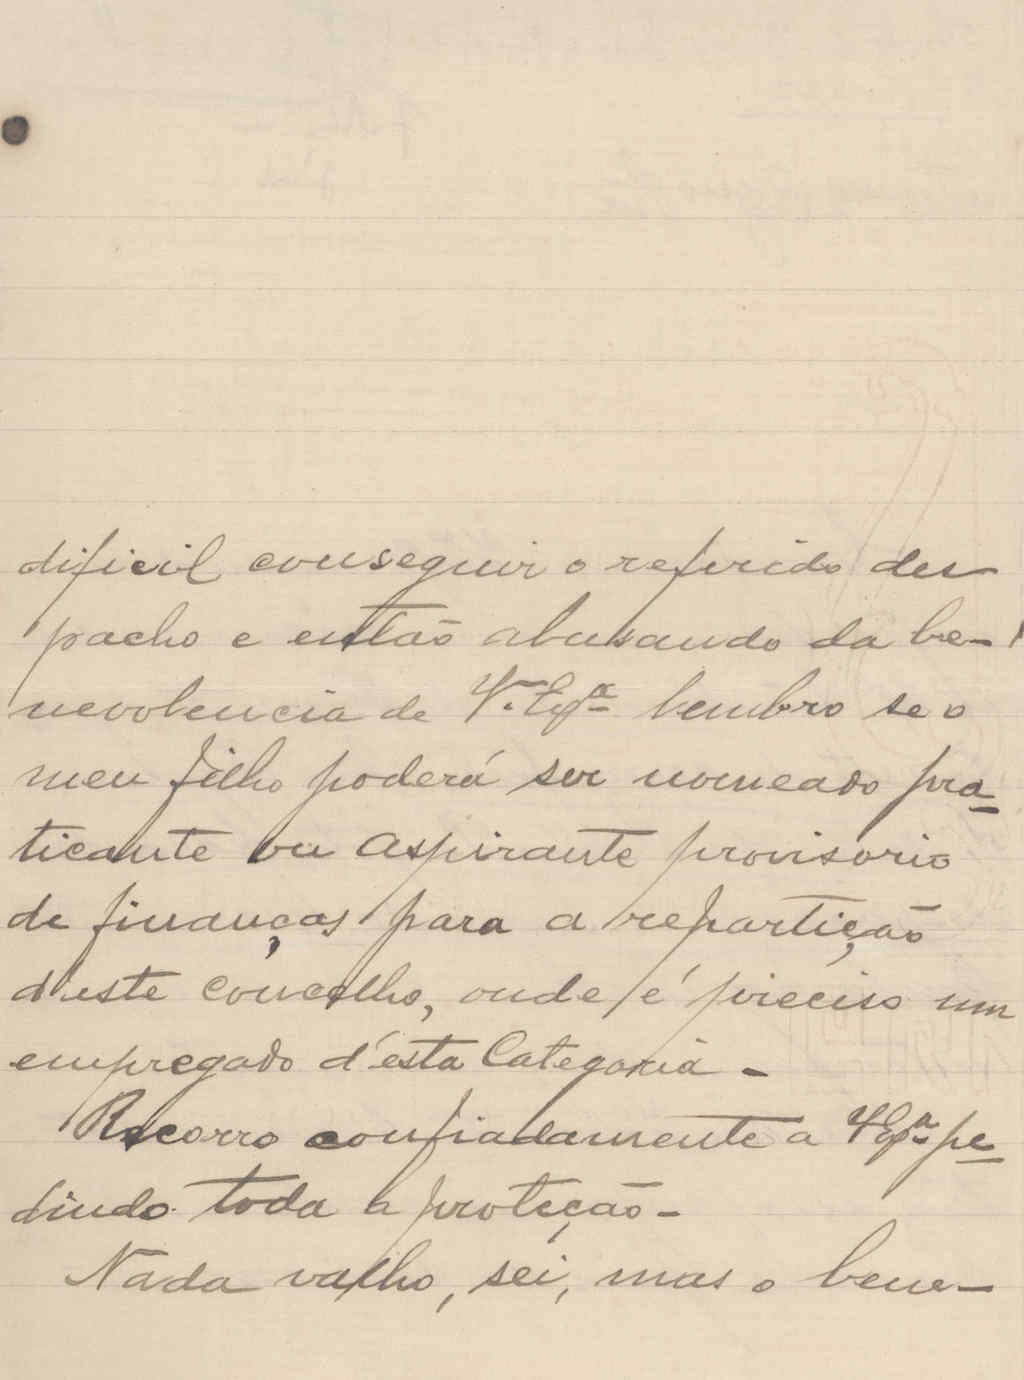 dificil conseguir o referido des
pacho e então abusando da be-
nevolencia de V. Exª lembro se o
meu filho poderá ser nomeado pra-
ticante ou aspirante provisorio
de finanças para a repartição
d'este concelho, onde é preciso um
empregado d'esta Categoria -
Recorro confiadamente a V Exª pe-
dindo toda a proteção -
Nada valho, sei, mas o bene-